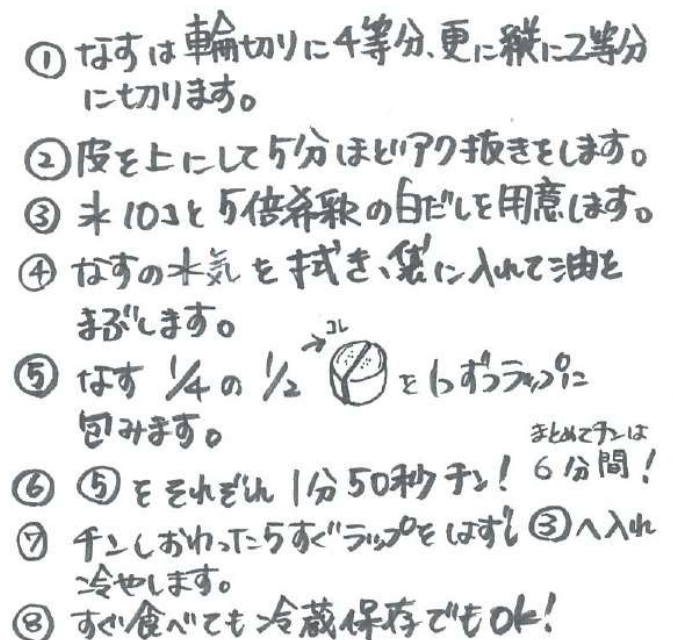 ① なすは輪切りに4等分、更に縦に2等分
に切ります。
② 皮を上にして5分ほどアク抜きをします。
③ 氷10コと5倍希釈の白だしを用意します。
④ なすの水気を拭き、袋に入れて油を
まぶします。
⑤ なす 1/4の1/2 →コレ を1つずつラップに
包みます。
⑥ ⑤をそれぞれ1分50秒チン! まとめてチンは
6分間!
⑦ チンしおわったらすぐラップをはずし③へ入れ
冷やします。
⑧ すぐ食べても冷蔵保存でもOK!